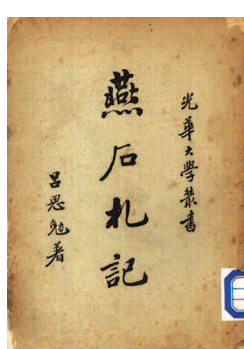 光華大學叢書
燕石札記
呂思勉著